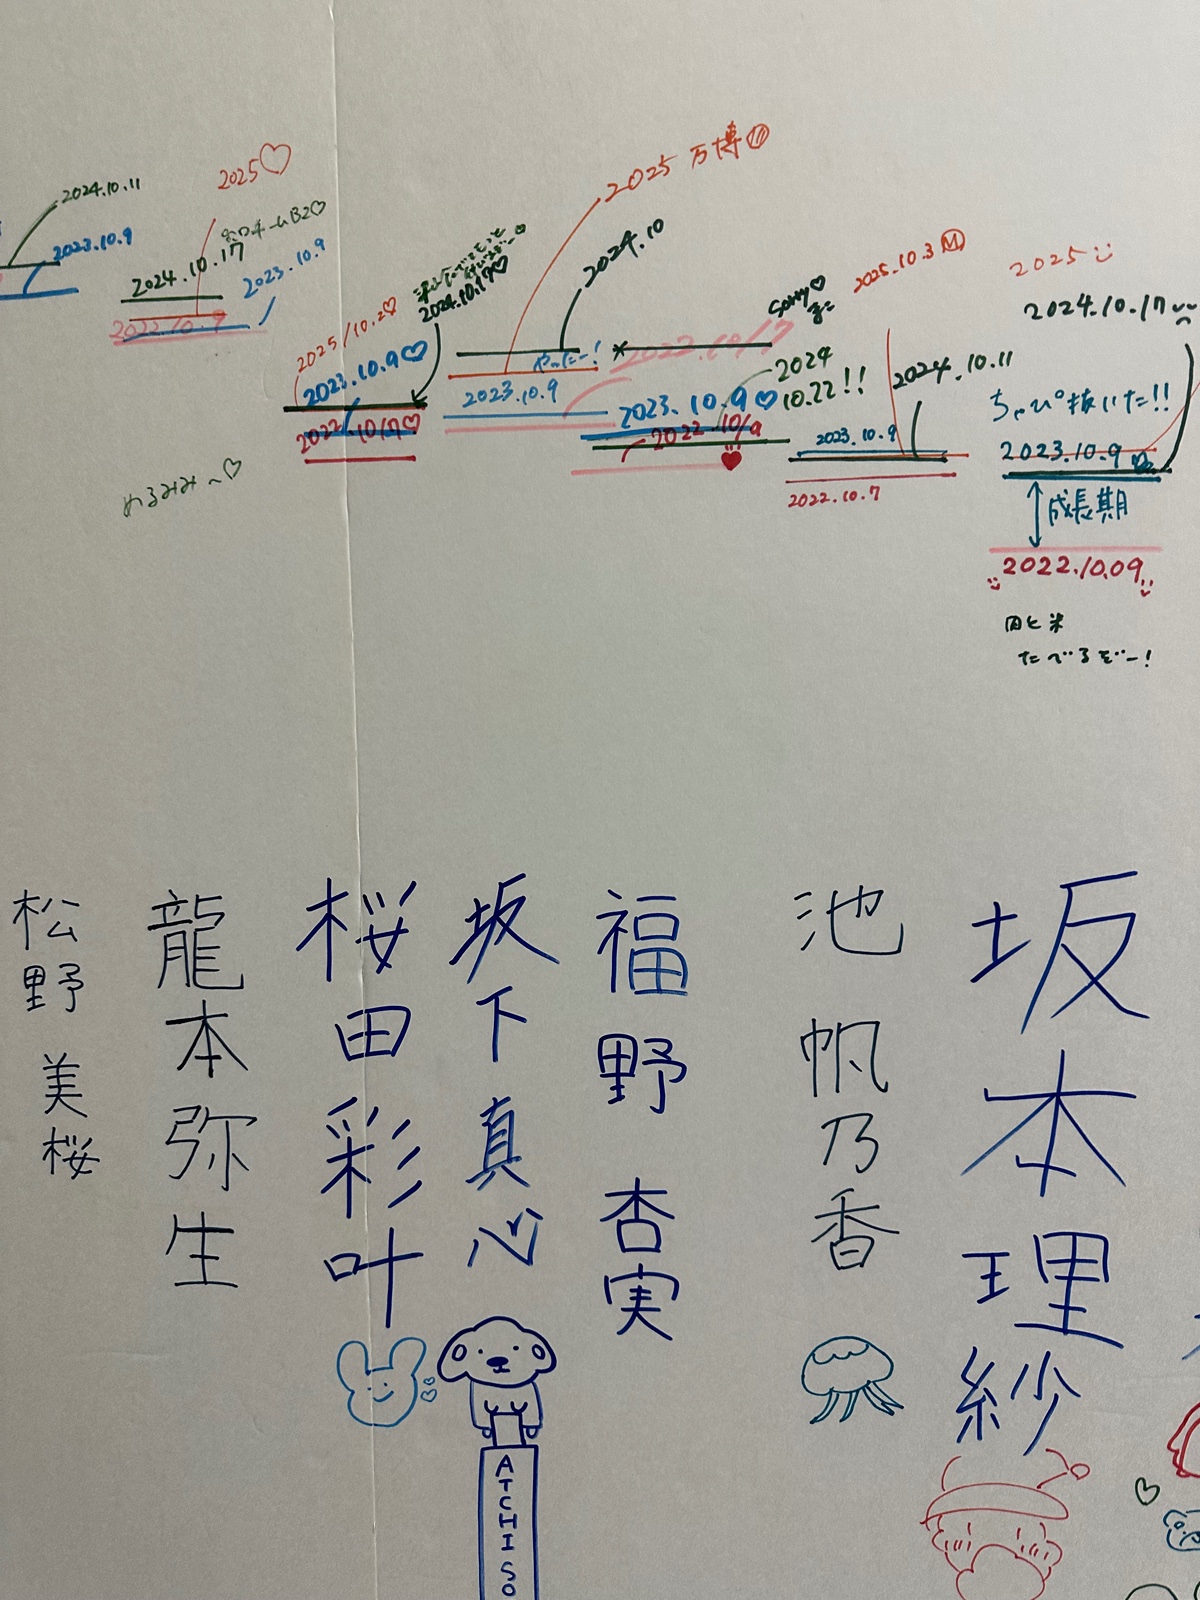 2024.10.11
2023.10.9
2025♡
2024.10.17
2023.10.9
2022.10.9
2025/10.2♡
2023.10.9♡
2024.10.17♡
2022.10/17♡
めるみみ〜♡
2025 万博
2024.10
やったー!
2023.10.9
Sorry♡
2022.10/17
2024
10.22!!
2023.10.9♡
2022.10/9
2025.10.3 Ⓜ
2024.10.11
2023.10.9
2022.10.7
2025
2024.10.17
ちゃぴ抜いた!!
2023.10.9
成長期
2022.10.09
肉と米
たべるぞー!
松野 美桜
龍本弥生
桜田彩叶
坂下真心
福野 杏実
池 帆乃香
坂本理紗
ATCHISO